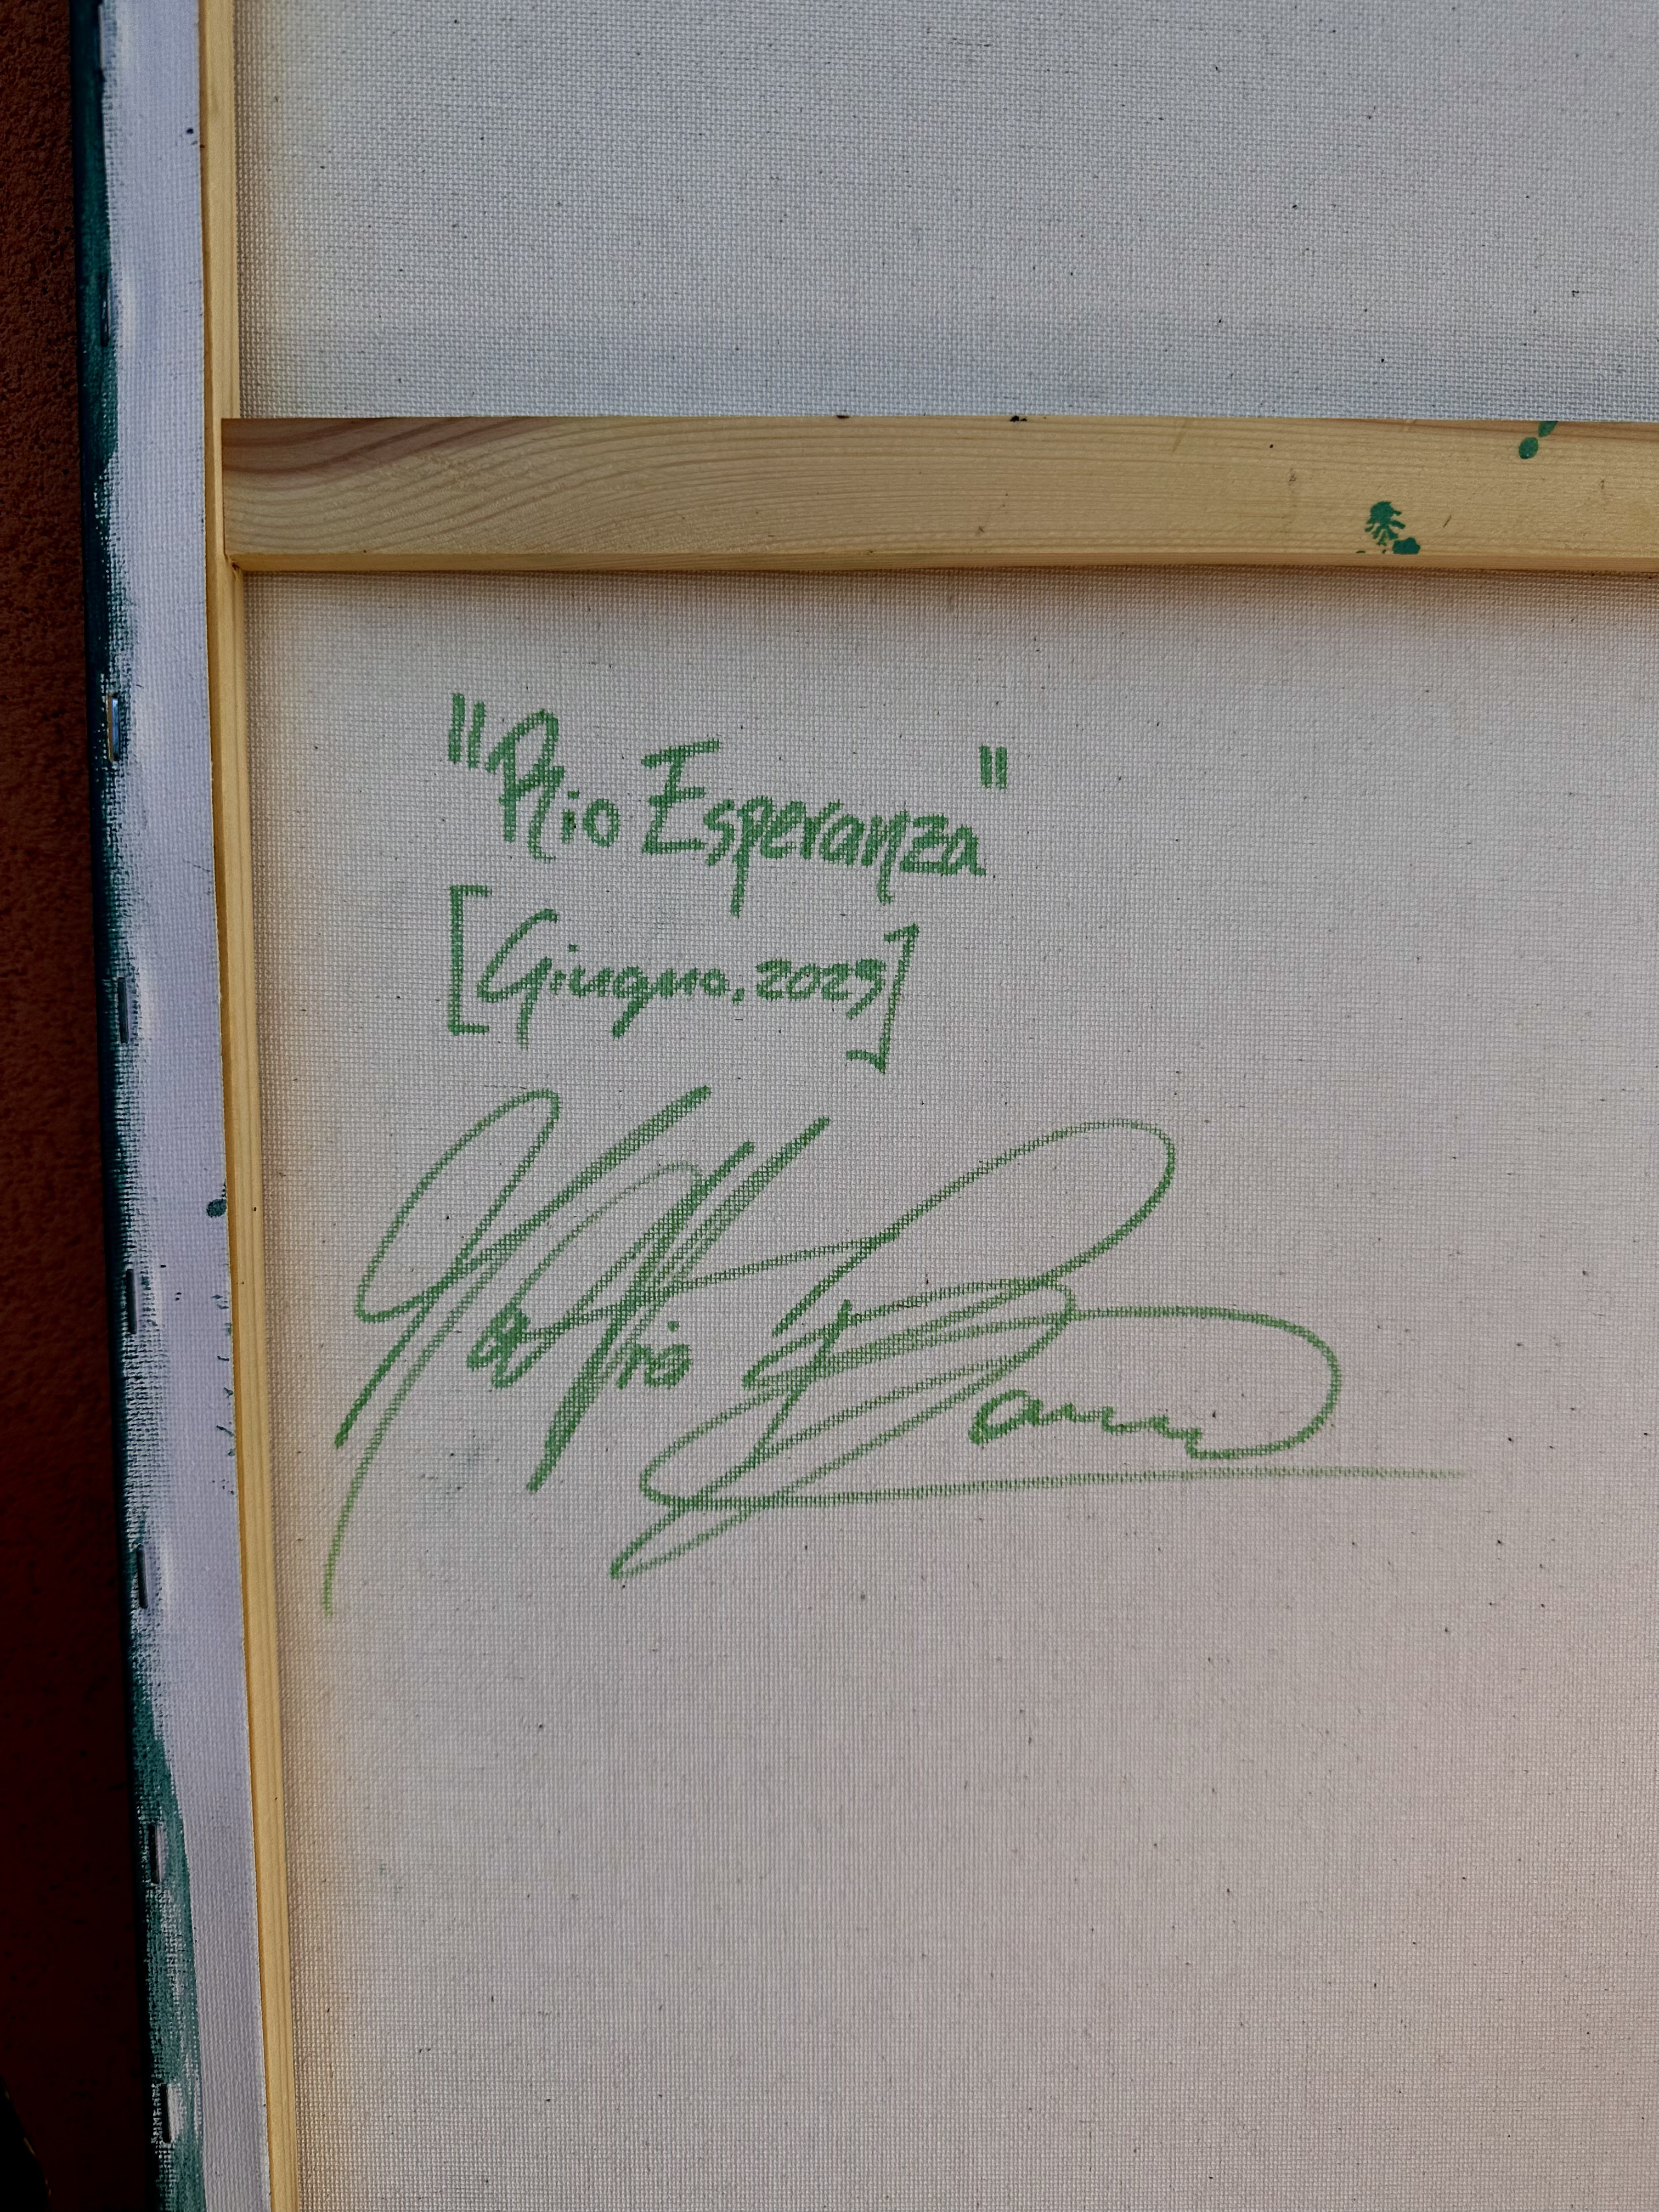 "Rio Esperanza"
[Giugno, 2023]